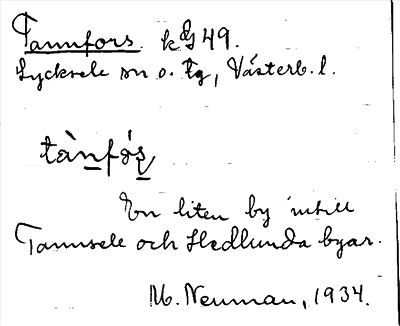 Tannfors. k G 49.
Lycksele sn o. tg, Västerb. l.
tànfós̠
En liten by intill
Tannsele och Hedlunda byar.
M. Neuman, 1934.